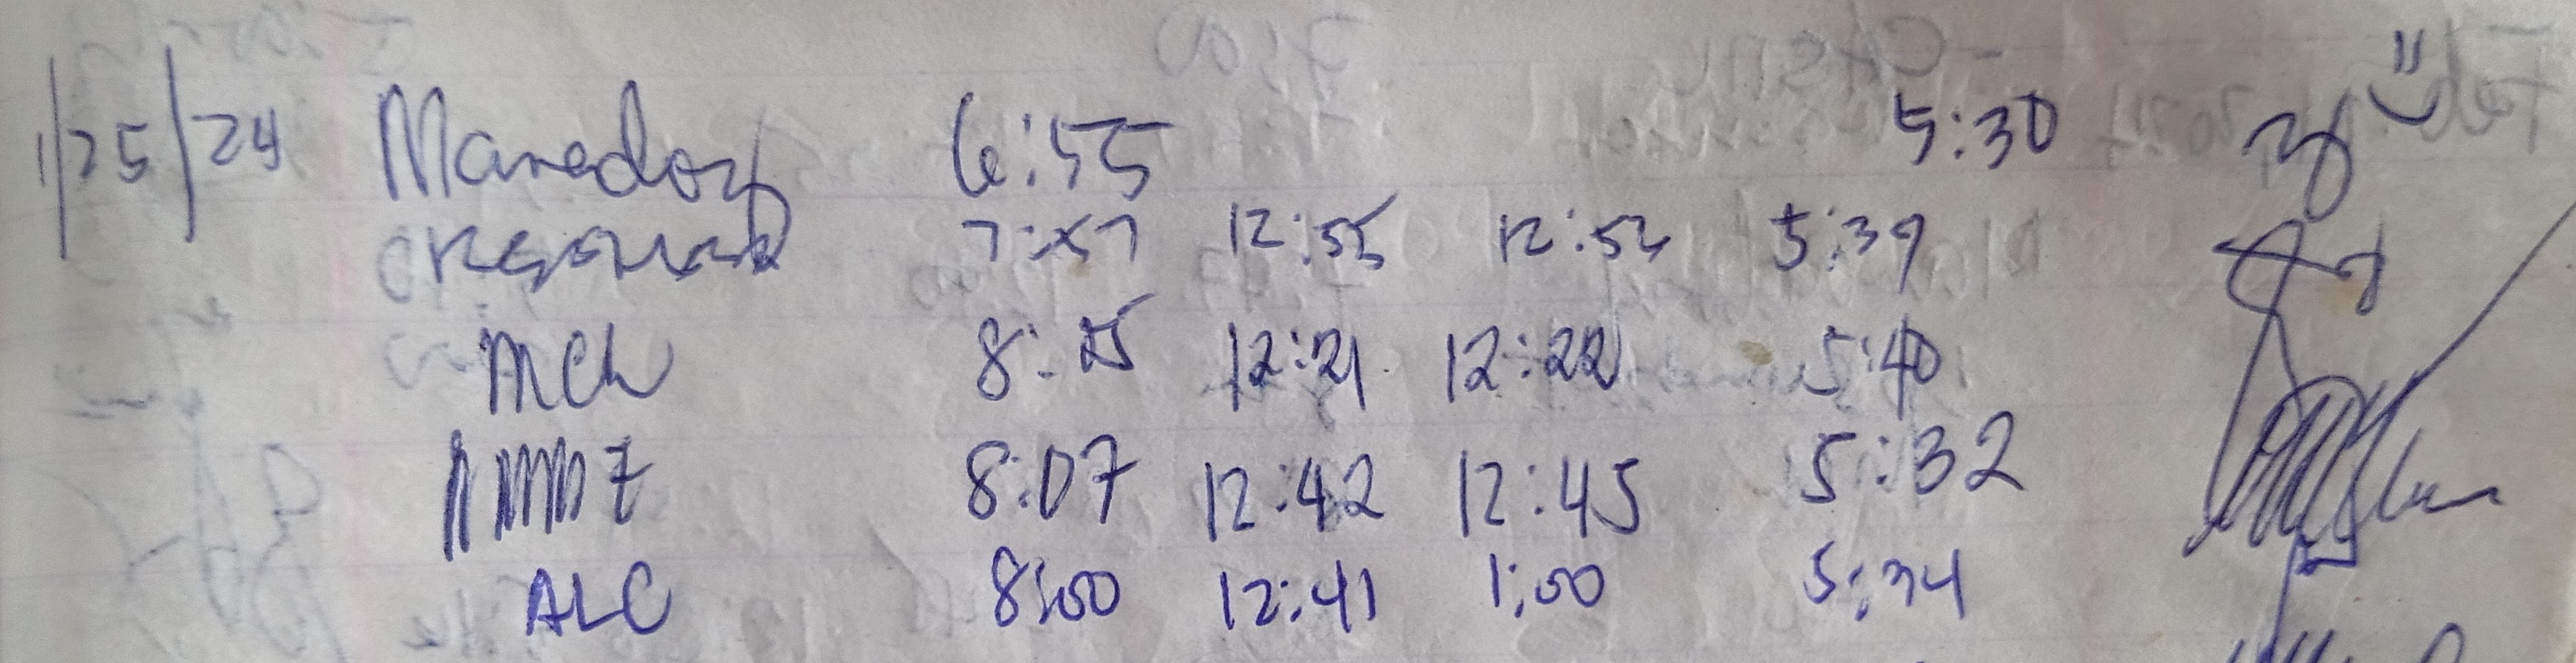 1/25/24 Maredoy 6:55 5:30
7:57 12:55 12:53 5:39
MCh 8:25 12:21 12:22 5:40
8:07 12:42 12:45 5:32
ALC 8:00 12:41 1:00 5:34